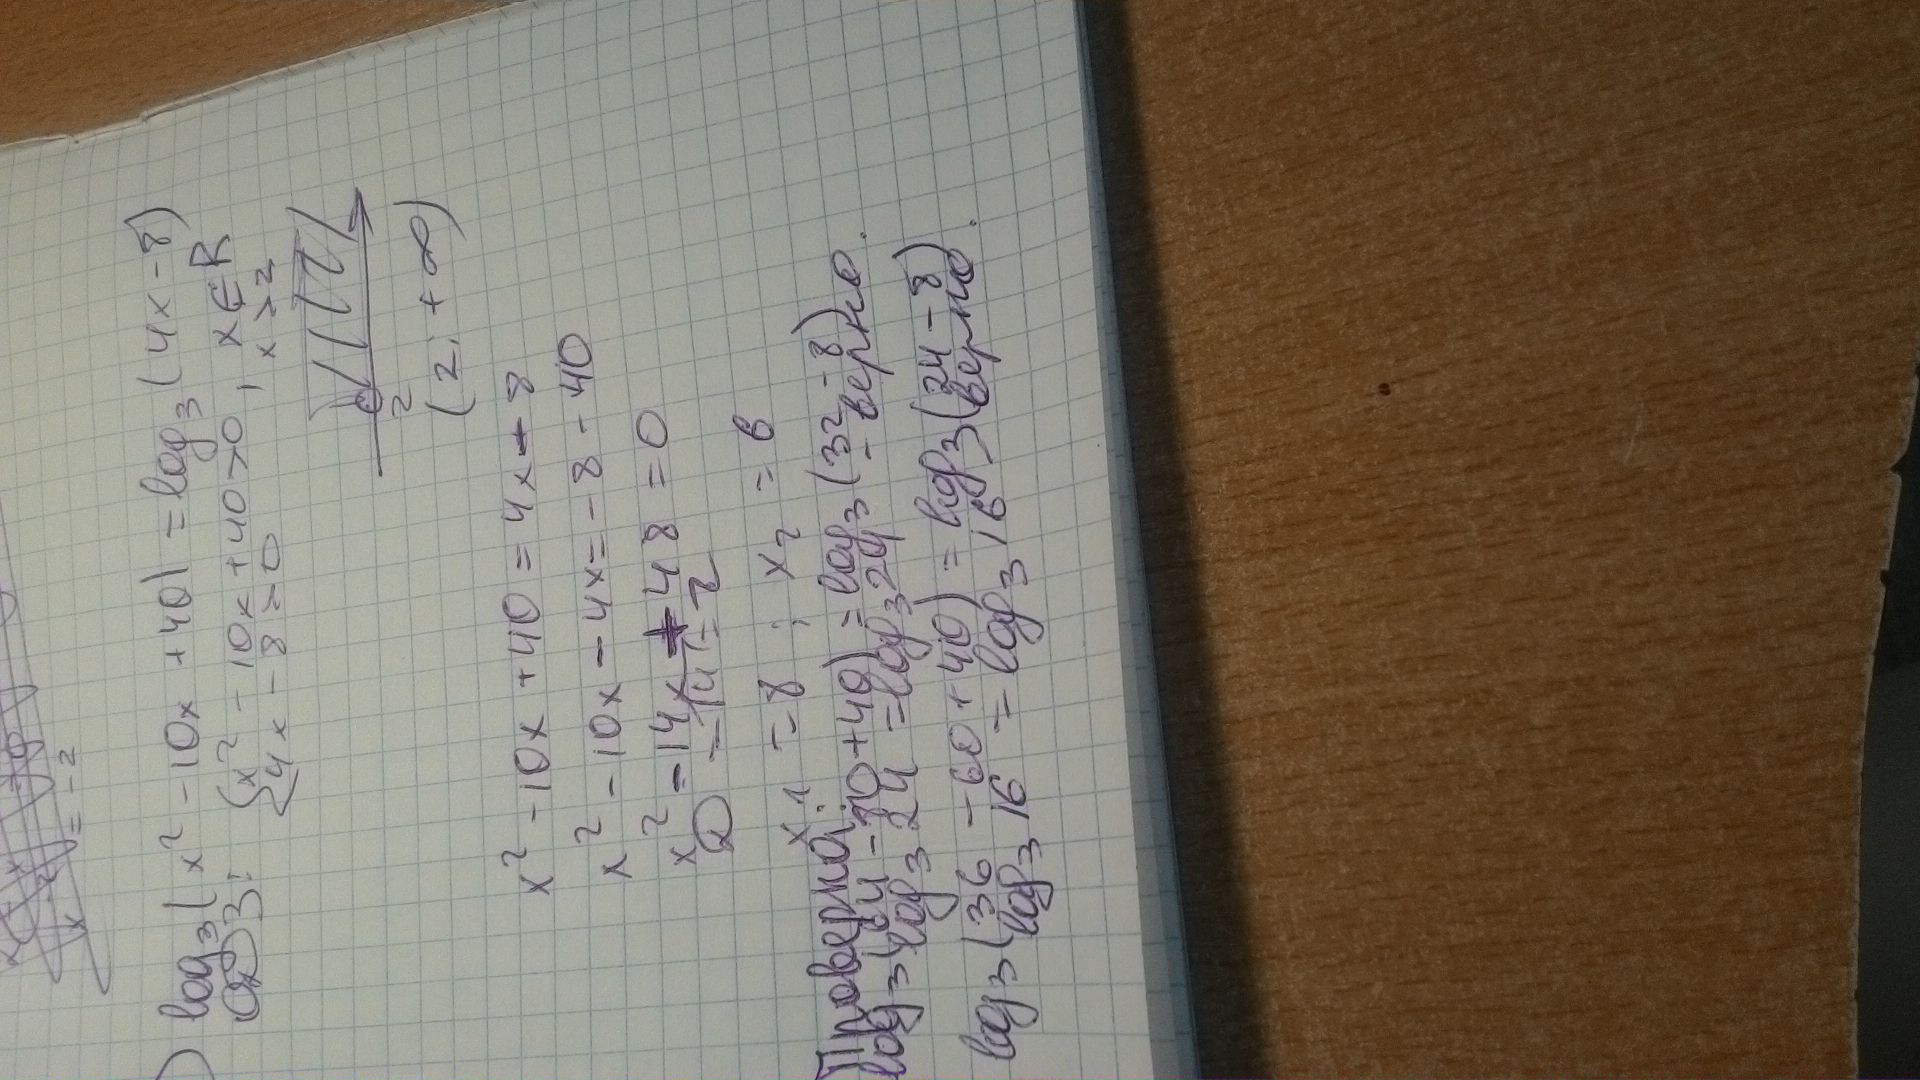 x = -2
) log₃(x² - 10x + 40) = log₃(4x - 8)
ОДЗ: {x² - 10x + 40 > 0, x ∈ R
4x - 8 > 0, x > 2
2
(2; +∞)
x² - 10x + 40 = 4x - 8
x² - 10x - 4x = -8 - 40
x² - 14x + 48 = 0
x₁ = 8; x₂ = 6
Проверка:
log₃(64 - 80 + 40) = log₃(32 - 8)
log₃24 = log₃24 - верно.
log₃(36 - 60 + 40) = log₃(24 - 8)
log₃16 = log₃16 верно.